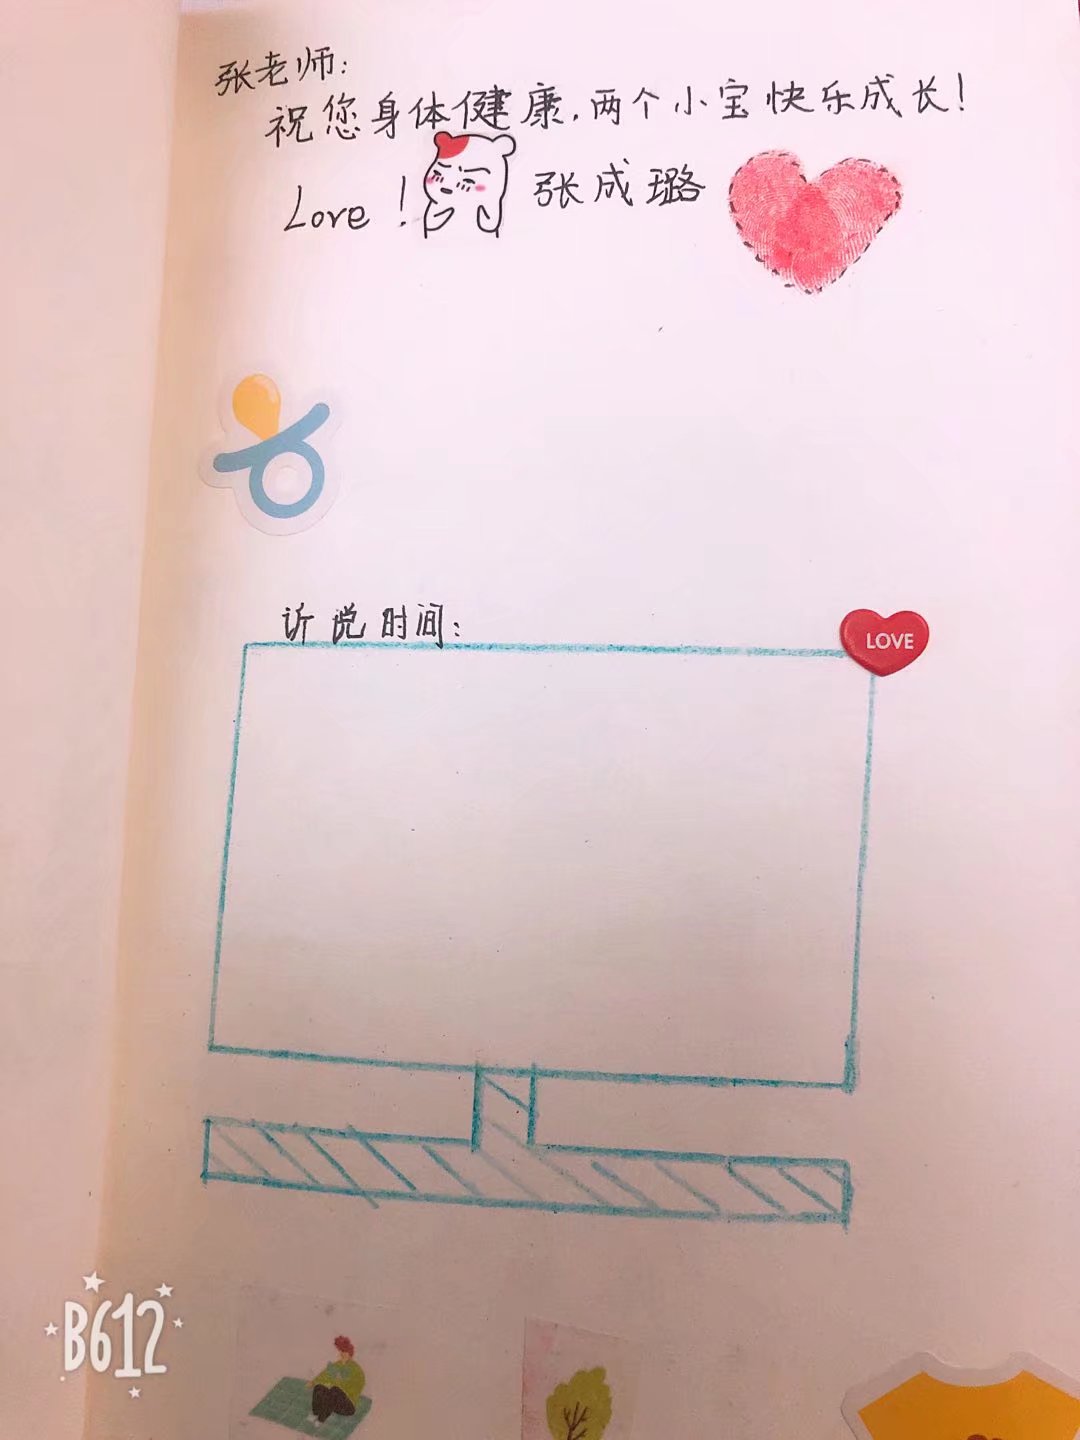 张老师:
祝您身体健康,两个小宝快乐成长!
Love! 张成璐
诉说时间:
LOVE
B612